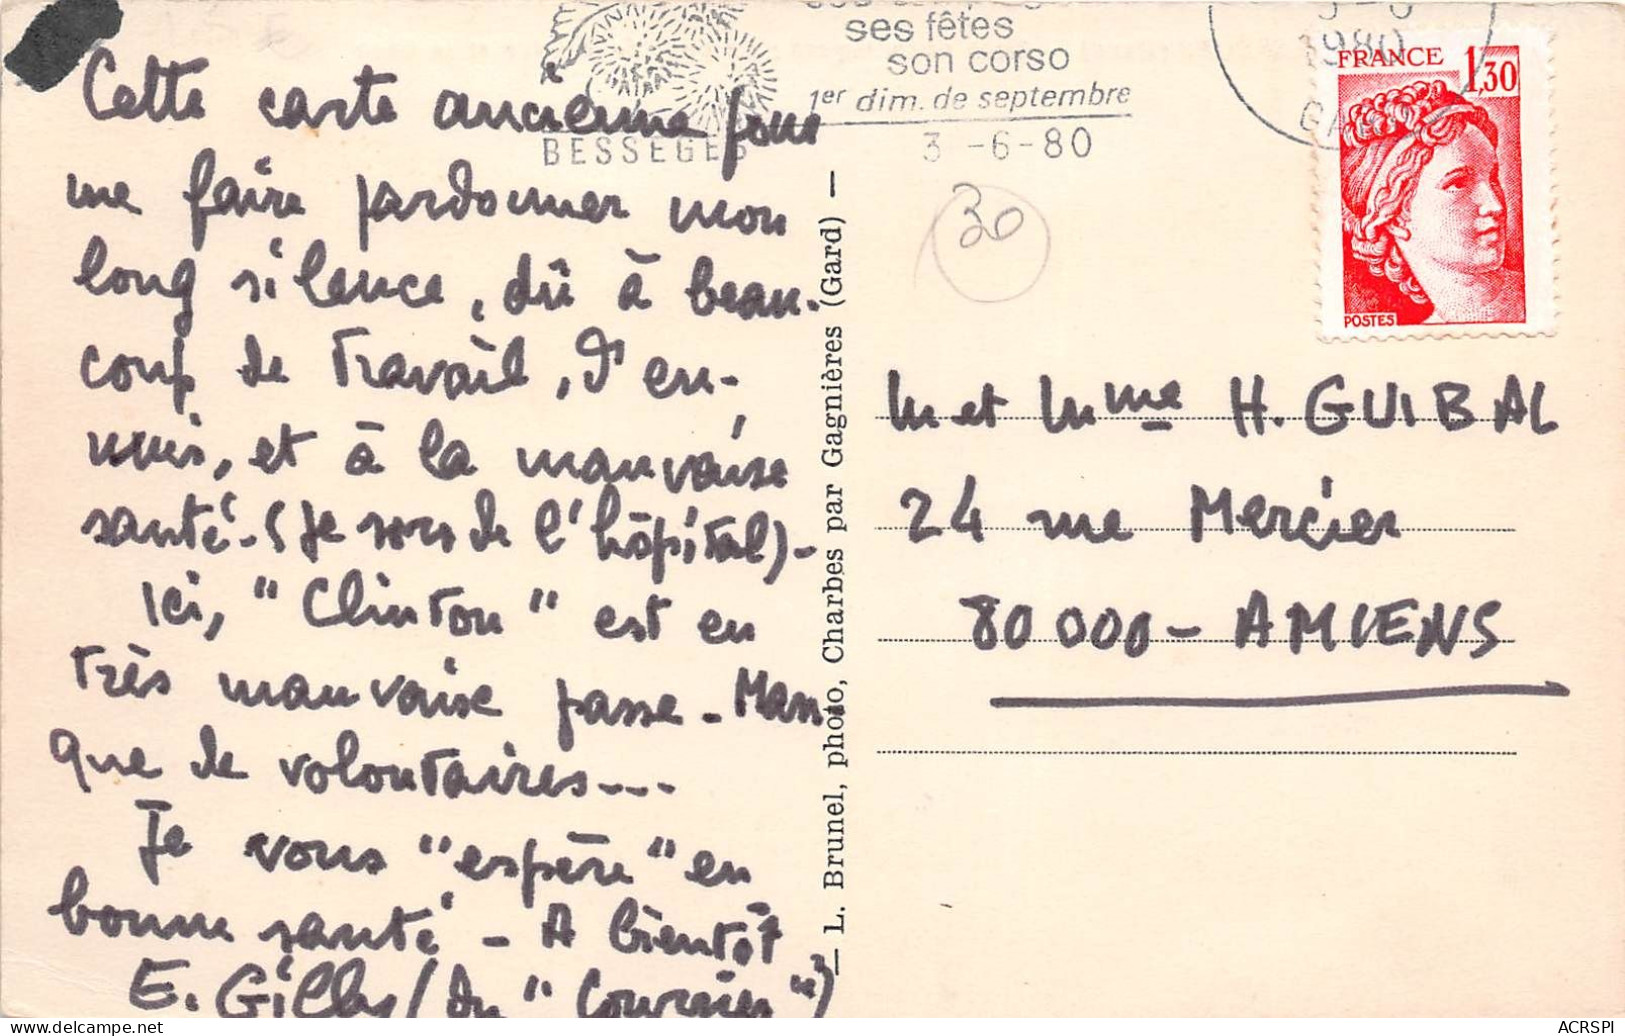 ses fêtes
son corso
1er dim. de septembre
BESSEGES
3 -6-80
1980
FRANCE 1,30
POSTES
30
Cette carte ancienne pour
me faire pardonner mon
long silence, dû à beau-
coup de travail, d'en-
nuis, et à la mauvaise
santé - (je sors de l'hôpital) -
Ici, "Clinton" est en
très mauvaise passe - Man-
que de volontaires ...
Je vous "espère" en
bonne santé - A bientôt
E. Gilly (du "Courrier")
— L. Brunel, photo, Charbes par Gagnières (Gard) —
M et Mme H. GUIBAL
24 rue Mercier
80 000 - AMIENS
ACRSPI